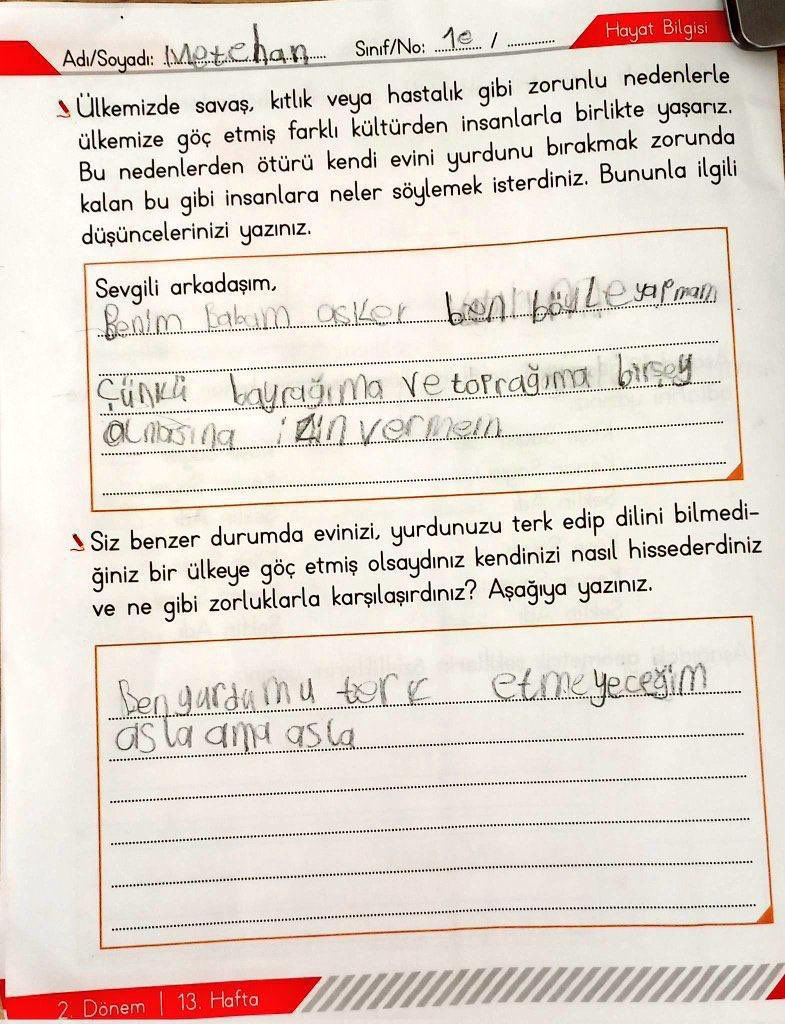 Hayat Bilgisi
Adı/Soyadı: Metehan Sınıf/No: 1e / ............
Ülkemizde savaş, kıtlık veya hastalık gibi zorunlu nedenlerle
ülkemize göç etmiş farklı kültürden insanlarla birlikte yaşarız.
Bu nedenlerden ötürü kendi evini yurdunu bırakmak zorunda
kalan bu gibi insanlara neler söylemek isterdiniz. Bununla ilgili
düşüncelerinizi yazınız.
Sevgili arkadaşım,
Benim Babam asker ben böyle yapmam
Çünkü bayrağıma ve toprağıma birşey
olmasına izin vermem
Siz benzer durumda evinizi, yurdunuzu terk edip dilini bilmedi-
ğiniz bir ülkeye göç etmiş olsaydınız kendinizi nasıl hissederdiniz
ve ne gibi zorluklarla karşılaşırdınız? Aşağıya yazınız.
Ben yurdumu terk etmeyeceğim
asla ama asla
2. Dönem | 13. Hafta